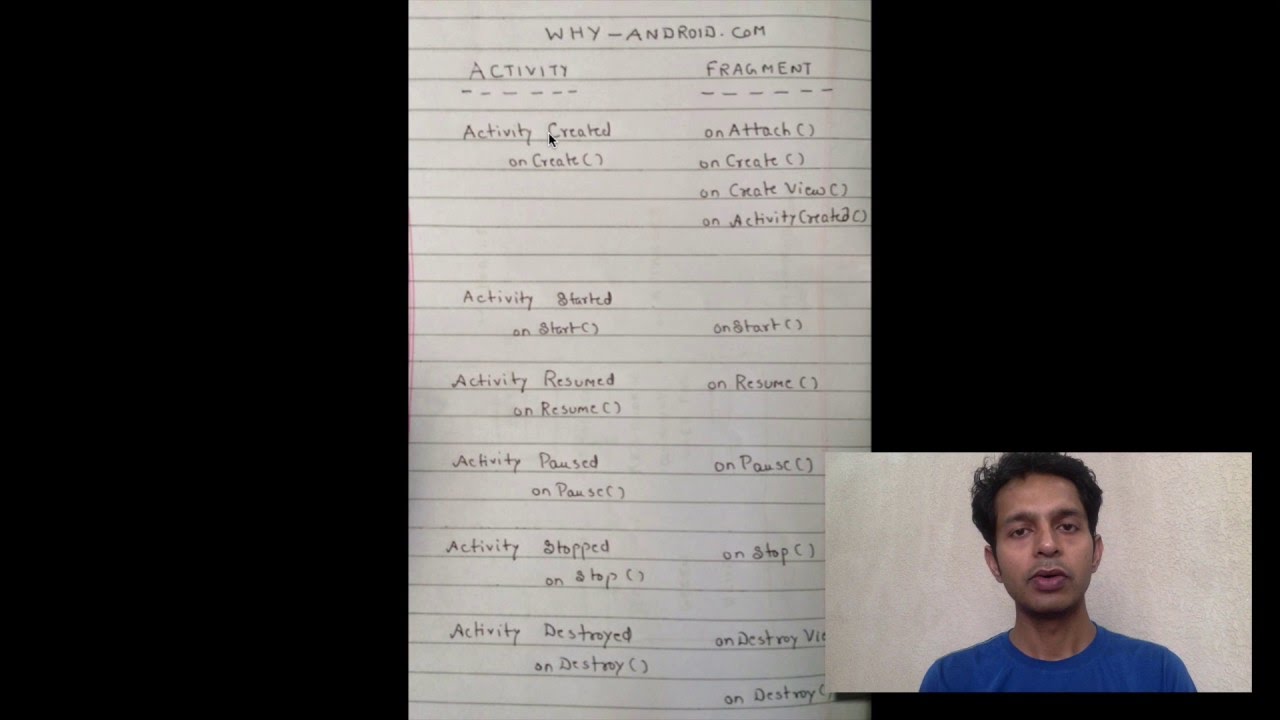 WHY-ANDROID.COM
ACTIVITY FRAGMENT
Activity Created on Attach()
on Create() on Create()
on Create View()
on Activity Created()
Activity Started
on Start() onStart()
Activity Resumed on Resume()
on Resume()
Activity Paused on Pause()
on Pause()
Activity Stopped on Stop()
on Stop()
Activity Destroyed on Destroy Vie
on Destroy()
on Destroy(